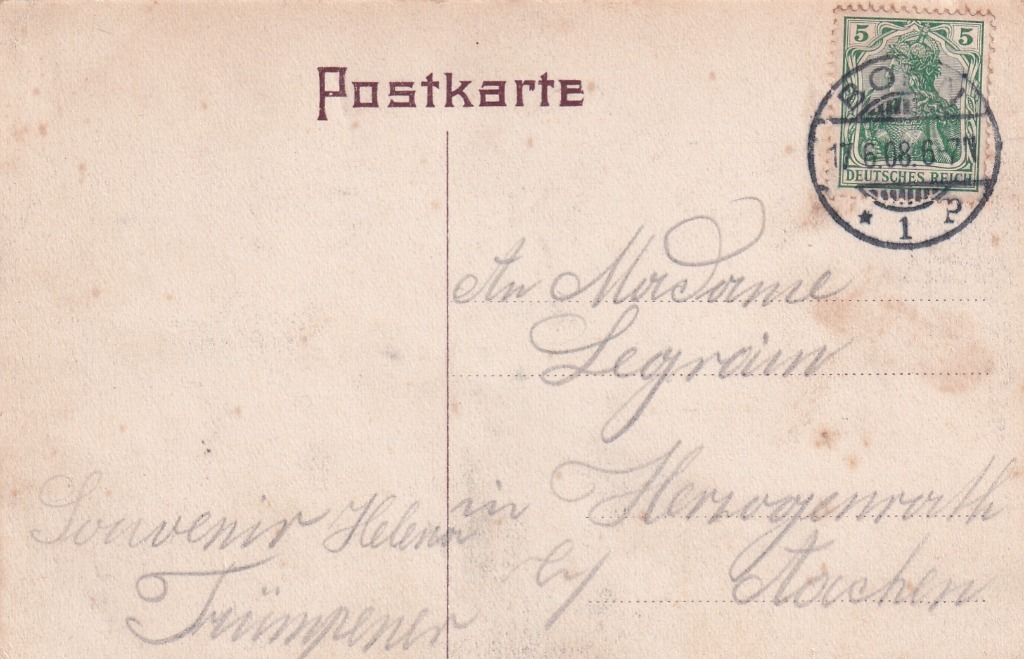 Postkarte
5 5
DEUTSCHES REICH
BONN
17.6.08.6-7N
* 1 P
An Madame
Legrain
in Herzogenrath
b/ Aachen
Souvenir Helena
Trümpener